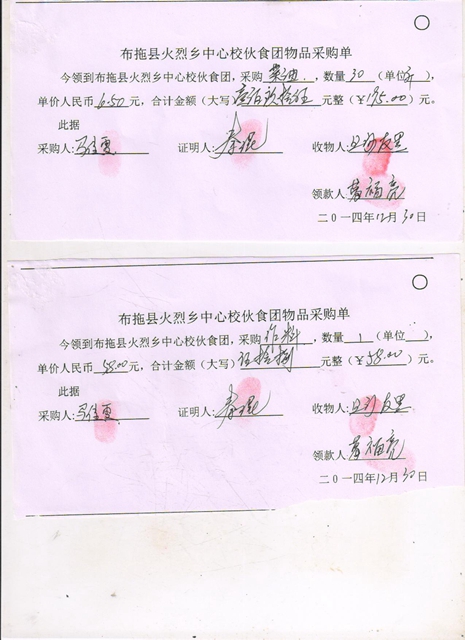 布拖县火烈乡中心校伙食团物品采购单
今领到布拖县火烈乡中心校伙食团，采购菜油，数量30（单位斤），
单价人民币6.50元，合计金额（大写）壹佰玖拾伍元整（￥195.00）元。
此据
采购人:马佳夏 证明人:秦琨 收物人:
领款人:
二0一四年12月30日
布拖县火烈乡中心校伙食团物品采购单
今领到布拖县火烈乡中心校伙食团，采购作料，数量1（单位 ），
单价人民币58.00元，合计金额（大写）伍拾捌元整（￥58.00）元。
此据
采购人:马佳夏 证明人:秦琨 收物人:
领款人:
二0一四年12月30日